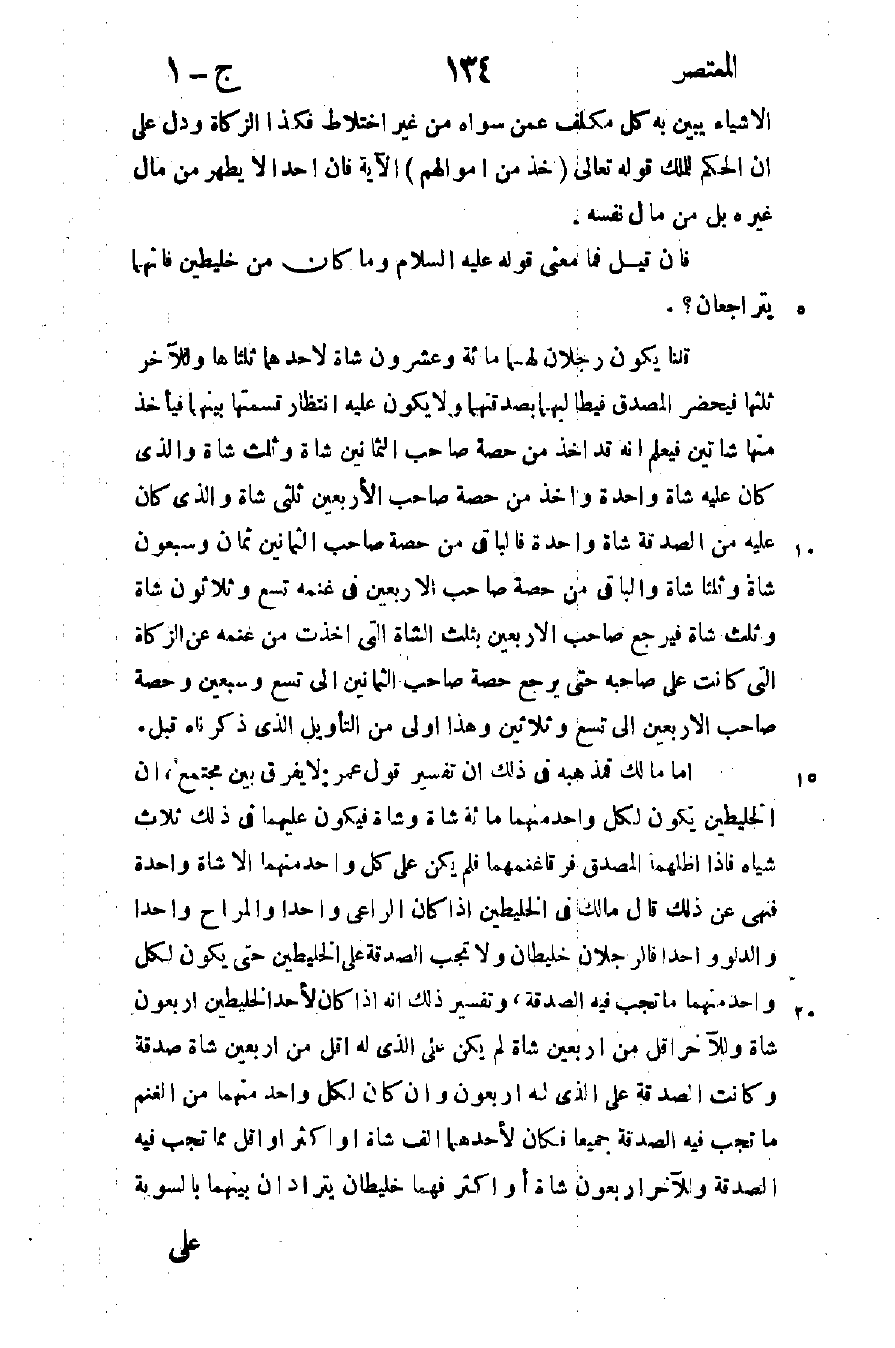 المعتصر ١٣٤ ج - ١
الاشياء يبين به كل مكلف عمن سواه من غير اختلاط فكذا الزكاة ودل على
ان الحكم للملك قوله تعالى (خذ من اموالهم) الآية فان احدا لا يطهر من مال
غيره بل من مال نفسه .
فان قيل فما معنى قوله عليه السلام وما كان من خليطين فانهما
٥ يتراجعان؟ .
قلنا يكون رجلان لهما مائة وعشرون شاة لاحدهما ثلثاها وللآخر
ثلثها فيحضر المصدق فيطالبهما بصدقتهما ولا يكون عليه انتظار قسمتها بينهما فيأخذ
منها شاتين فيعلم انه قد اخذ من حصة صاحب الثمانين شاة وثلث شاة والذى
كان عليه شاة واحدة واخذ من حصة صاحب الأربعين ثلثى شاة والذى كان
١٠ عليه من الصدقة شاة واحدة فالباقى من حصة صاحب الثمانين ثمان وسبعون
شاة وثلثا شاة والباقى من حصة صاحب الاربعين فى غنمه تسع وثلاثون شاة
وثلث شاة فيرجع صاحب الاربعين بثلث الشاة التى اخذت من غنمه عن الزكاة
التى كانت على صاحبه حتى يرجع حصة صاحب الثمانين الى تسع وسبعين وحصة
صاحب الاربعين الى تسع وثلاثين وهذا اولى من التأويل الذى ذكرناه قبل .
١٥ اما مالك فمذهبه فى ذلك ان تفسير قول عمر: لا يفرق بين مجتمع، ان
الخليطين يكون لكل واحد منهما مائة شاة وشاة فيكون عليهما فى ذلك ثلاث
شياه فاذا اظلهما المصدق فرقا غنمهما فلم يكن على كل واحد منهما الا شاة واحدة
فنهى عن ذلك قال مالك فى الخليطين اذا كان الراعى واحدا والمراح واحدا
والدلو واحدا فالرجلان خليطان ولا تجب الصدقة على الخليطين حتى يكون لكل
٢٠ واحد منهما ما تجب فيه الصدقة، وتفسير ذلك انه اذا كان لأحد الخليطين اربعون
شاة وللآخر اقل من اربعين شاة لم يكن على الذى له اقل من اربعين شاة صدقة
وكانت الصدقة على الذى له اربعون وان كان لكل واحد منهما من الغنم
ما تجب فيه الصدقة جميعا فكان لأحدهما الف شاة او اكثر او اقل مما تجب فيه
الصدقة وللآخر اربعون شاة أو اكثر فهما خليطان يترادان بينهما بالسوية
على